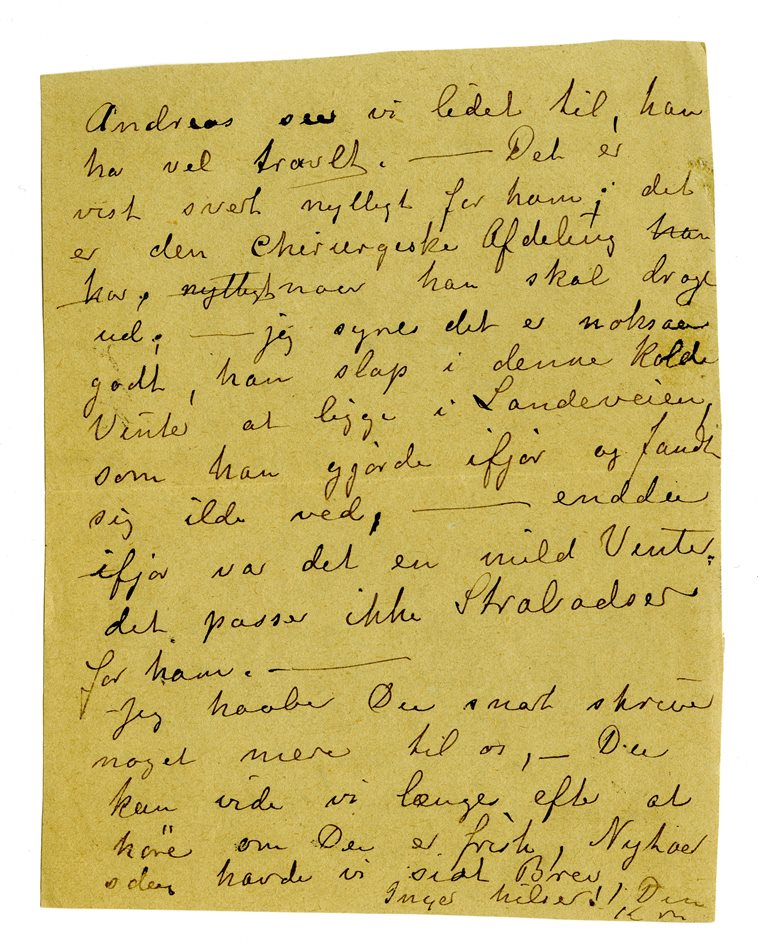 Andreas see vi lidet til, han
ha vel travlt. — Det er
vist svært nyttigt for ham; det
er den Chirurgiske Afdeling han
har, nyttigt naar han skal drage
ud; — jeg synes det er noksaa
godt, han slap i denne kolde
Vinter at ligge i Landeveien,
som han gjorde ifjor og fandt
sig ilde ved, — endda
ifjor var det en mild Vinter,
det passer ikke Strabadser
for ham. —
Jeg haaber Du snart skriver
noget mere til os, — Du
kan vide vi længes efter at
höre om Du er frisk,
siden havde vi sidst Brev
Inger hilser!! Din